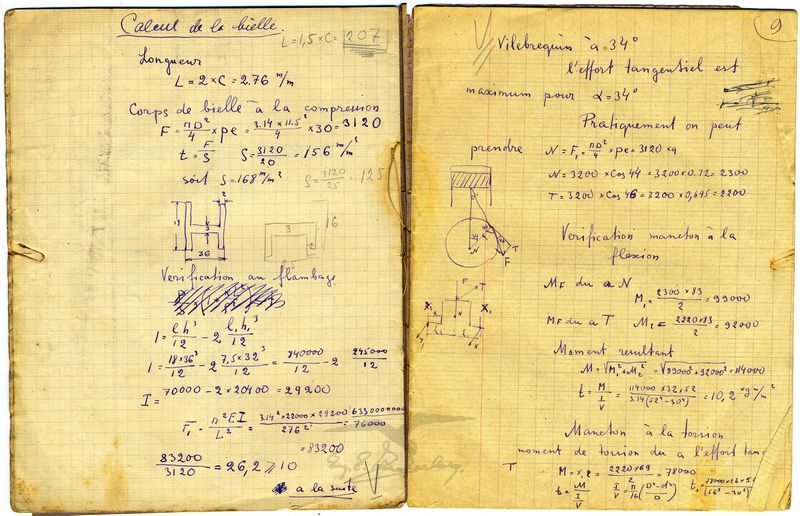 Calcul de la bielle.
L=1,5×C= 207
Longueur
L = 2×C = 2.76 m/m
Corps de bielle à la compression
F = πD²/4 × pe = 3.14×11.5²/4 ×30 = 3120
t = F/S S = 3120/20 = 156 m/m²
soit S = 168 m/m² S = 3120/25 = 125
3
36
3
16
Verification au flambage
I = lh³/12 - 2 l₁h₁³/12
I = 18×36³/12 - 2 7,5×32³/12 = 840000/12 - 2 245000/12
I = 70000 - 2×20400 = 29200
F₁ = π²EI/L² = 3.14²×22000×29200/276² = 6330000000/76000
= 83200
83200/3120 = 26,2 ≥ 10
a la suite
9
Vilebrequin à 34°
l'effort tangentiel est
maximum pour α = 34°
Pratiquement on peut
prendre N = F₁ = πD²/4 × pe = 3120 kg
N = 3200 × Cos 44 = 3200×0.72 = 2300
T = 3200 × Cos 46 = 3200×0,695 = 2200
Verification maneton à la
flexion
T
F
MF du a N
M₁ = 2300×83/2 = 99000
MF du a T M₂ = 2220×83/2 = 92000
Moment resultant
M = √M₁²+M₂² = √99000²+92000² = 114000
t = M/(I/V) = 114000×32×52/3.14(52²-30²) = 10,2 kg m/m²
Maneton à la torsion
moment de torsion du a l'effort tang
T M = × 2 = 2220×69/2 = 78000
t = M/(I/V)